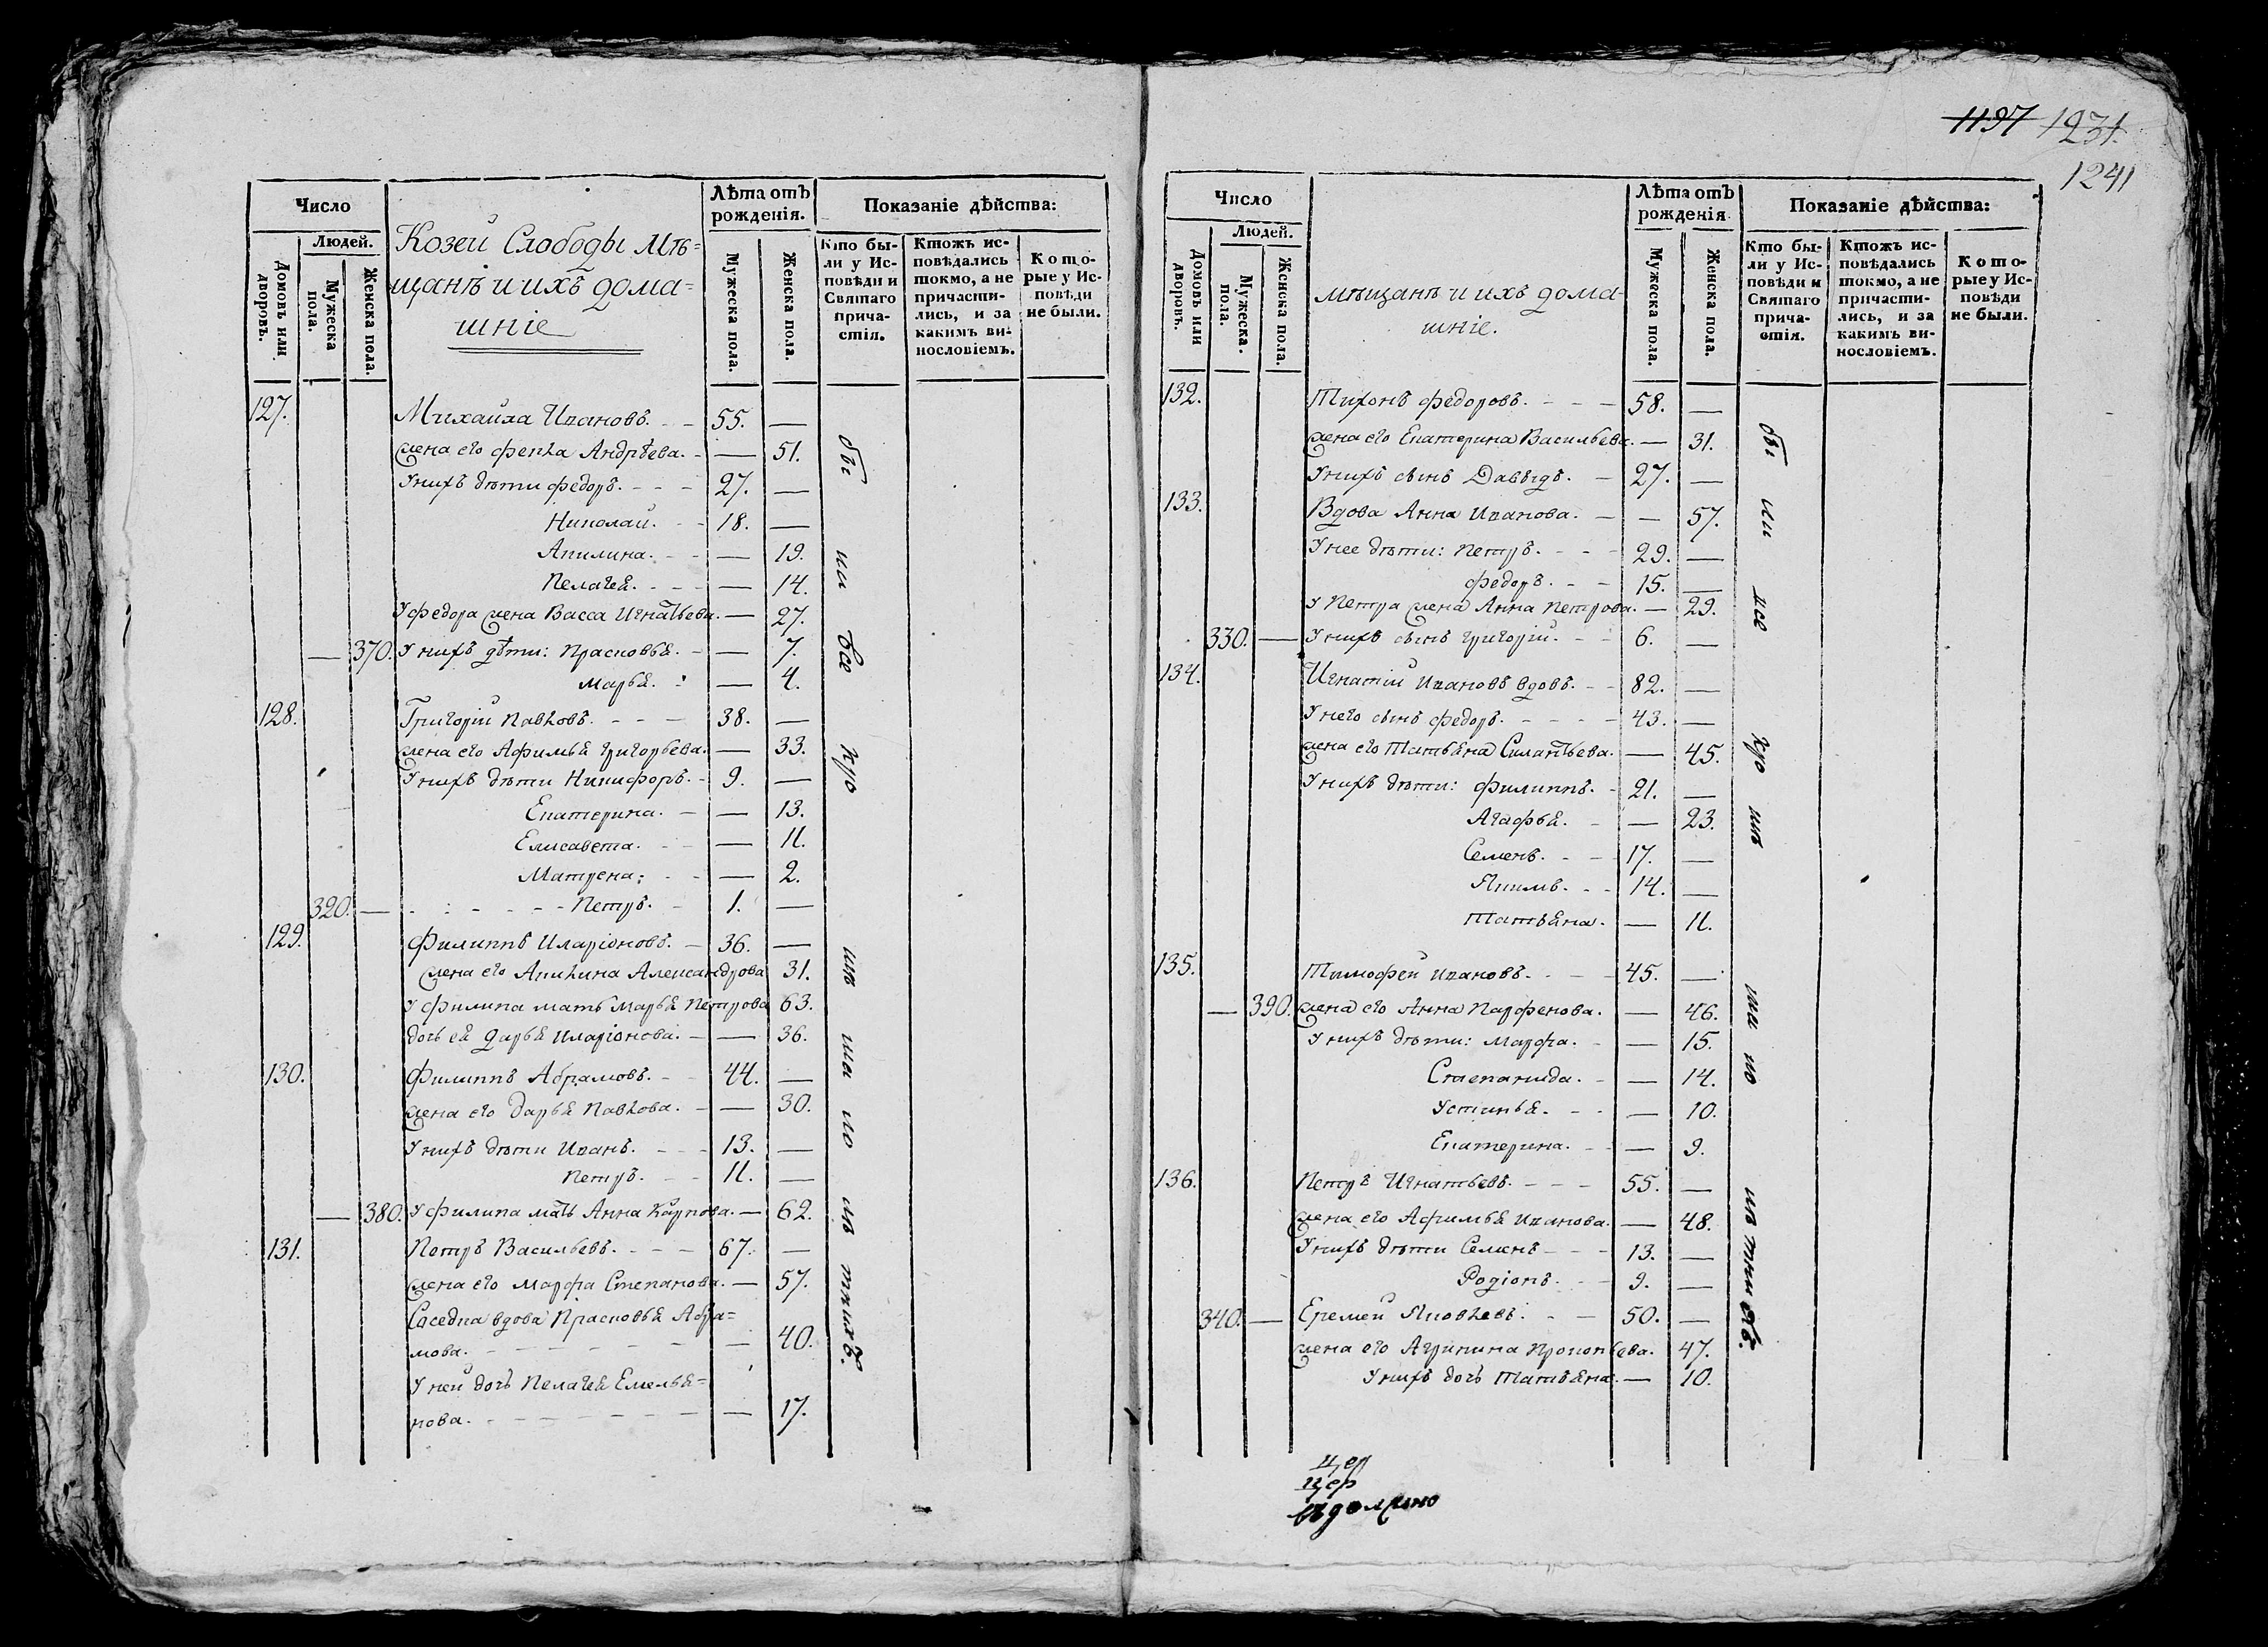 1197 1231.
1241
Число
Людей.
Домовъ или дворовъ.
Мужеска пола.
Женска пола.
Козей Слободы Мѣ=
щанъ и ихъ дома=
шніе
Лѣта отъ рожденія.
Мужеска пола.
Женска пола.
Показаніе дѣйства:
Кто бы-
ли у Ис-
повѣди и
Святаго
прича-
стія.
Ктожъ ис-
повѣдались
токмо, а не
причасти-
лись, и за
какимъ ви-
нословіемъ.
Кото-
рые у Ис-
повѣди
не были.
127. Михайла Ивановъ. 55. —
жена его Фекла Андрѣева. — 51.
У нихъ дѣти Федоръ. 27. —
Николай. 18. —
Акилина. — 19.
Пелагея. — 14.
У Федора жена Васса Игнатьева. — 27.
— 370. У нихъ дѣти: Прасковья. — 7.
Марья. — 4.
128. Григорій Павловъ. 38. —
жена его Афимья Григорьева. — 33.
У нихъ дѣти Никифоръ. 9. —
Екатерина. — 13.
Елисавета. — 11.
Матрена. — 2.
320. — Петръ. 1. —
129. Филиппъ Иларіоновъ. 36. —
жена его Акилина Александрова 31.
У Филипа мать Марья Петрова 63.
дочь ея Дарья Иларіонова. — 36.
130. Филиппъ Абрамовъ. 44. —
жена его Дарья Павлова. — 30.
У нихъ дѣти Иванъ. 13. —
Петръ. 11. —
— 380. У Филипа мать Анна Карпова. — 62.
131. Петръ Васильевъ. 67. —
жена его Марфа Степанова. — 57.
Саседка вдова Прасковья Абра=
мова. — 40.
У ней дочь Пелагея Емелья=
нова. — 17.
бы ли все кро мѣ ма ло лѣ тнихъ.
Число
Людей.
Домовъ или дворовъ.
Мужеска. пола.
Женска пола.
мѣщанъ и ихъ дома-
шніе.
Лѣта отъ рожденія
Мужеска пола.
Женска пола.
Показаніе дѣйства:
Кто бы-
ли у Ис-
повѣди и
Святаго
прича-
стія.
Ктожъ ис-
повѣдались
токмо, а не
причасти-
лись, и за
какимъ ви-
нословіемъ.
Кото-
рые у Ис-
повѣди
не были.
132. Тихонъ Федоровъ. 58. —
жена его Екатерина Васильева. — 31.
У нихъ сынъ Давыдъ. 27. —
133. Вдова Анна Иванова. — 57.
У нее дѣти: Петръ. 29. —
Федоръ. 15. —
У Петра жена Анна Петрова. — 29.
330. — У нихъ сынъ Григорій. 6. —
134. Игнатій Ивановъ вдовъ. 82. —
У него сынъ Федоръ. 43. —
жена его Татьяна Силантьева. — 45.
У нихъ дѣти: Филиппъ. 21. —
Агафья. — 23.
Семенъ. 17. —
Якимъ. 14. —
Татьяна. — 11.
135. Тимофей Ивановъ. 45. —
— 390. жена его Анна Парфенова. — 46.
У нихъ дѣти: Марфа. — 15.
Степанида. — 14.
Устинья. — 10.
Екатерина. — 9.
136. Петръ Игнатьевъ. 55. —
жена его Афимья Иванова. — 48.
У нихъ дѣти Семенъ 13. —
Родіонъ. 9. —
340. — Еремей Яковлевъ. 50. —
жена его Агрипина Прокопьева. 47.
У нихъ дочь Татьяна. — 10.
бы ли все кро мѣ ма ло лѣ тни хъ.
цер
цер